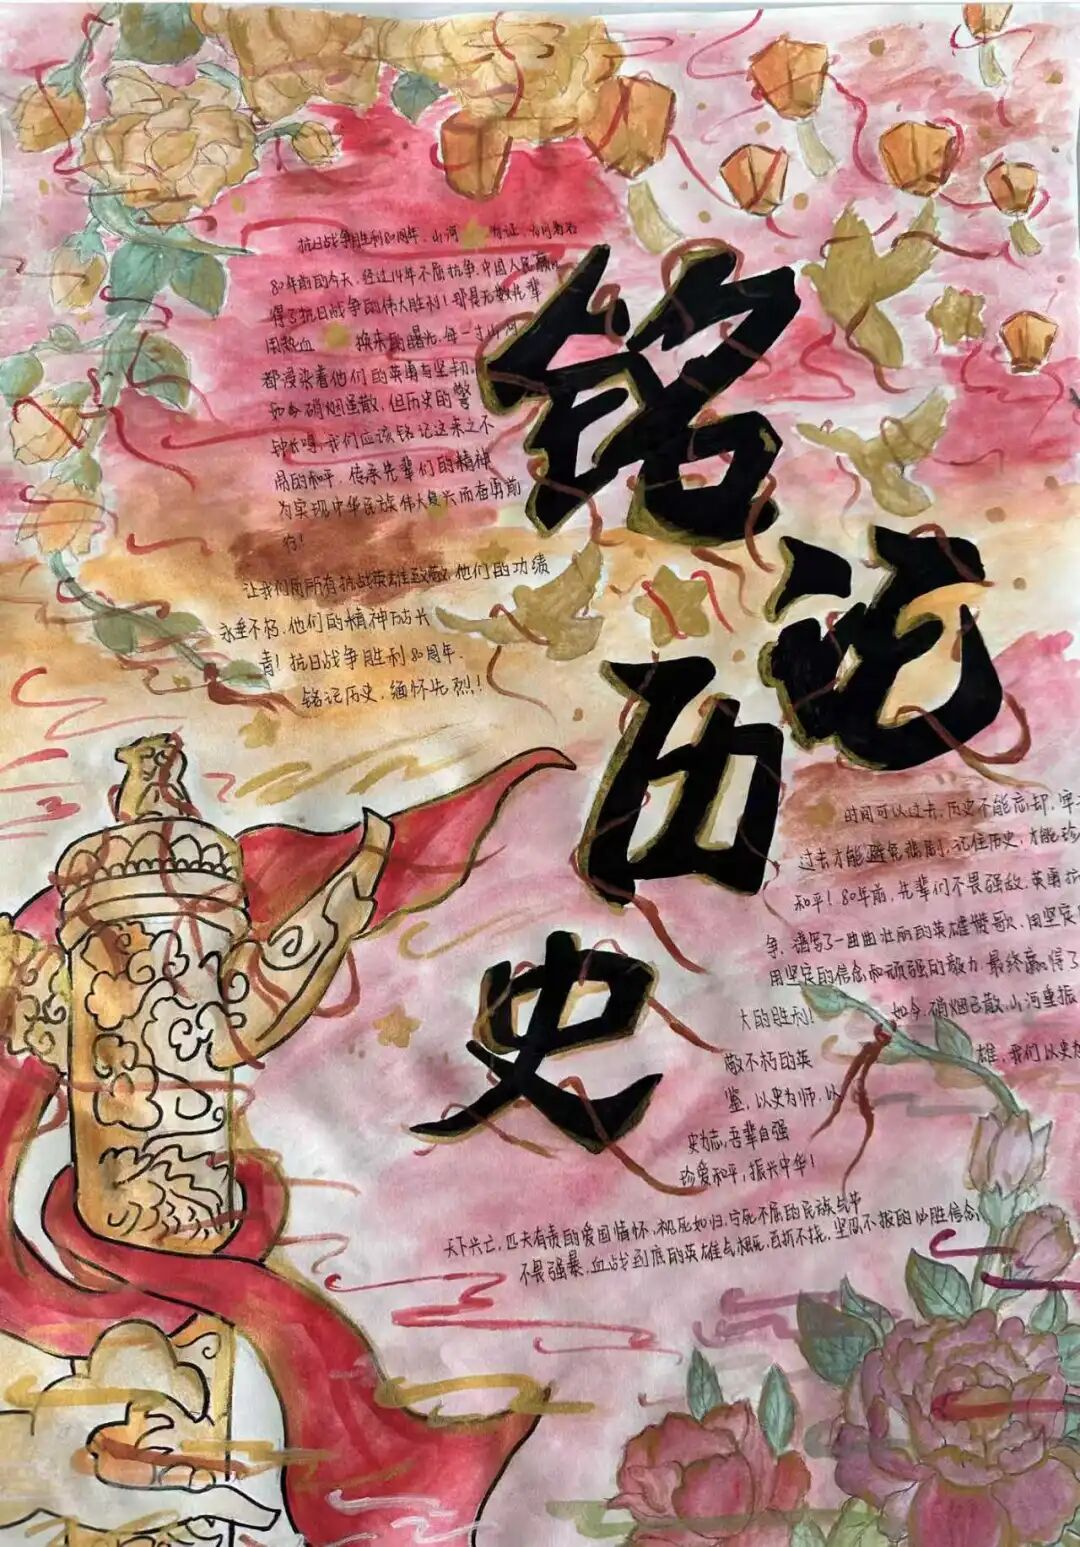 铭记历史
抗日战争胜利80周年、山河 有证、
80年前的今天、经过14年不屈抗争、中国人民赢
得了抗日战争的伟大胜利！那是无数先辈
用热血 换来的曙光、每一寸山河
都浸染着他们的英勇与坚韧。
如今硝烟虽散、但历史的警
钟长鸣、我们应该铭记这来之不
易的和平、传承先辈们的精神
为实现中华民族伟大复兴而奋勇前
行！
让我们向所有抗战英雄致敬、他们的功绩
永垂不朽、他们的精神万古长
青！抗日战争胜利80周年、
铭记历史、缅怀先烈！
时间可以过去、历史不能忘却、牢
过去才能避免悲剧、记住历史、才能珍
和平！80年前、先辈们不畏强敌、英勇抗
争、谱写了一曲曲壮丽的英雄赞歌、用坚定
用坚定的信念和顽强的毅力、最终赢得了
大的胜利！ 如今、硝烟已散、山河重振
敬不朽的英 雄、我们以史为
鉴、以史为师、以
史为志、吾辈自强
珍爱和平、振兴中华！
天下兴亡、匹夫有责的爱国情怀、视死如归、宁死不屈的民族气节
不畏强暴、血战到底的英雄气概、百折不挠、坚忍不拔的必胜信念、